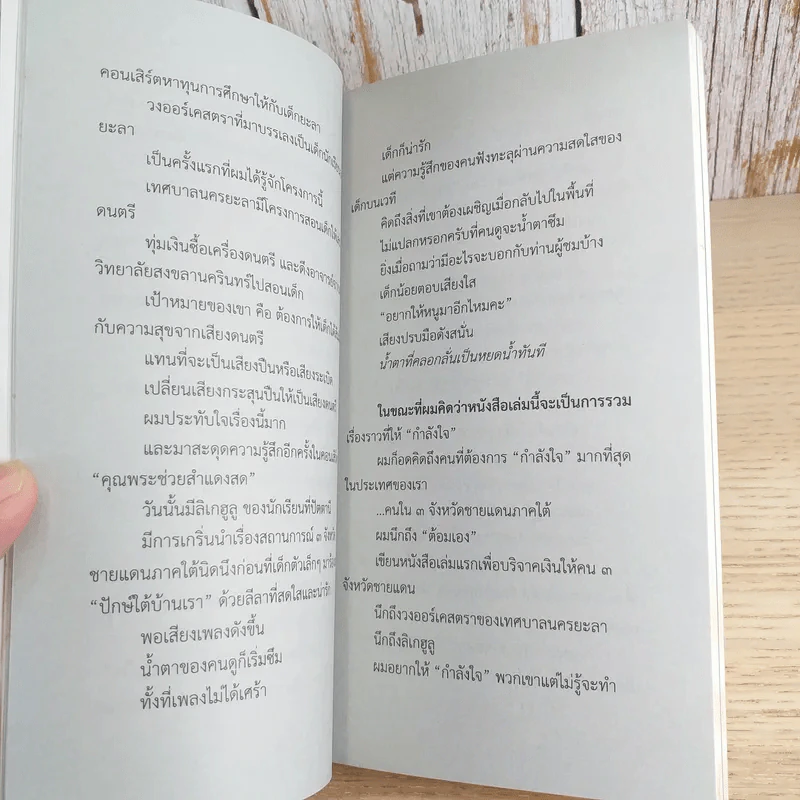 คอนเสิร์ตหาทุนการศึกษาให้กับเด็กยะลา
วงออร์เคสตราที่มาบรรเลงเป็นเด็กนักเรียน
ยะลา
เป็นครั้งแรกที่ผมได้รู้จักโครงการนี้
เทศบาลนครยะลามีโครงการสอนเด็กให้
ดนตรี
ทุ่มเงินซื้อเครื่องดนตรี และดึงอาจารย์จาก
วิทยาลัยสงขลานครินทร์ไปสอนเด็ก
เป้าหมายของเขา คือ ต้องการให้เด็กได้
กับความสุขจากเสียงดนตรี
แทนที่จะเป็นเสียงปืนหรือเสียงระเบิด
เปลี่ยนเสียงกระสุนปืนให้เป็นเสียงดนตรี
ผมประทับใจเรื่องนี้มาก
และมาสะดุดความรู้สึกอีกครั้งใน
“คุณพระช่วยสำแดงสด”
วันนั้นมีลิเกฮูลู ของนักเรียนที่ปัตตานี
มีการเกริ่นนำเรื่องสถานการณ์ ๓ จังหวัด
ชายแดนภาคใต้นิดนึงก่อนที่เด็กตัวเล็กๆ
“ปักษ์ใต้บ้านเรา” ด้วยลีลาที่สดใสและน่ารัก
พอเสียงเพลงดังขึ้น
น้ำตาของคนดูก็เริ่มซึม
ทั้งที่เพลงไม่ได้เศร้า
เด็กก็น่ารัก
แต่ความรู้สึกของคนฟังทะลุผ่านความสดใสของ
เด็กบนเวที
คิดถึงสิ่งที่เขาต้องเผชิญเมื่อกลับไปในพื้นที่
ไม่แปลกหรอกครับที่คนดูจะน้ำตาซึม
ยิ่งเมื่อถามว่ามีอะไรจะบอกกับท่านผู้ชมบ้าง
เด็กน้อยตอบเสียงใส
“อยากให้หนูมาอีกไหมคะ”
เสียงปรบมือดังสนั่น
น้ำตาที่คลอกลั่นเป็นหยดน้ำทันที
ในขณะที่ผมคิดว่าหนังสือเล่มนี้จะเป็นการรวม
เรื่องราวที่ให้ “กำลังใจ”
ผมก็อดคิดถึงคนที่ต้องการ “กำลังใจ” มากที่สุด
ในประเทศของเรา
...คนใน ๓ จังหวัดชายแดนภาคใต้
ผมนึกถึง “ต้อมเอง”
เขียนหนังสือเล่มแรกเพื่อบริจาคเงินให้คน ๓
จังหวัดชายแดน
นึกถึงวงออร์เคสตราของเทศบาลนครยะลา
นึกถึงลิเกฮูลู
ผมอยากให้ “กำลังใจ” พวกเขาแต่ไม่รู้จะทำ